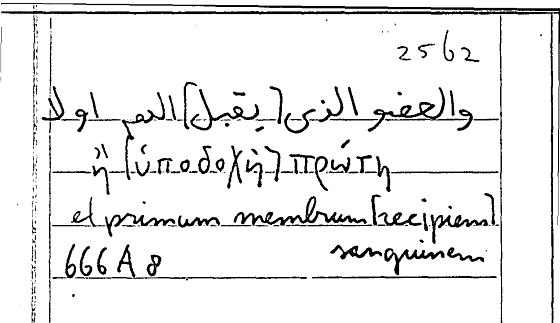 2562
والعضو الذى [يقبل] الدم اولا
ἢ [ὑποδοχὴ] πρώτη
et primum membrum [recipiens]
sanguinem
666 A 8